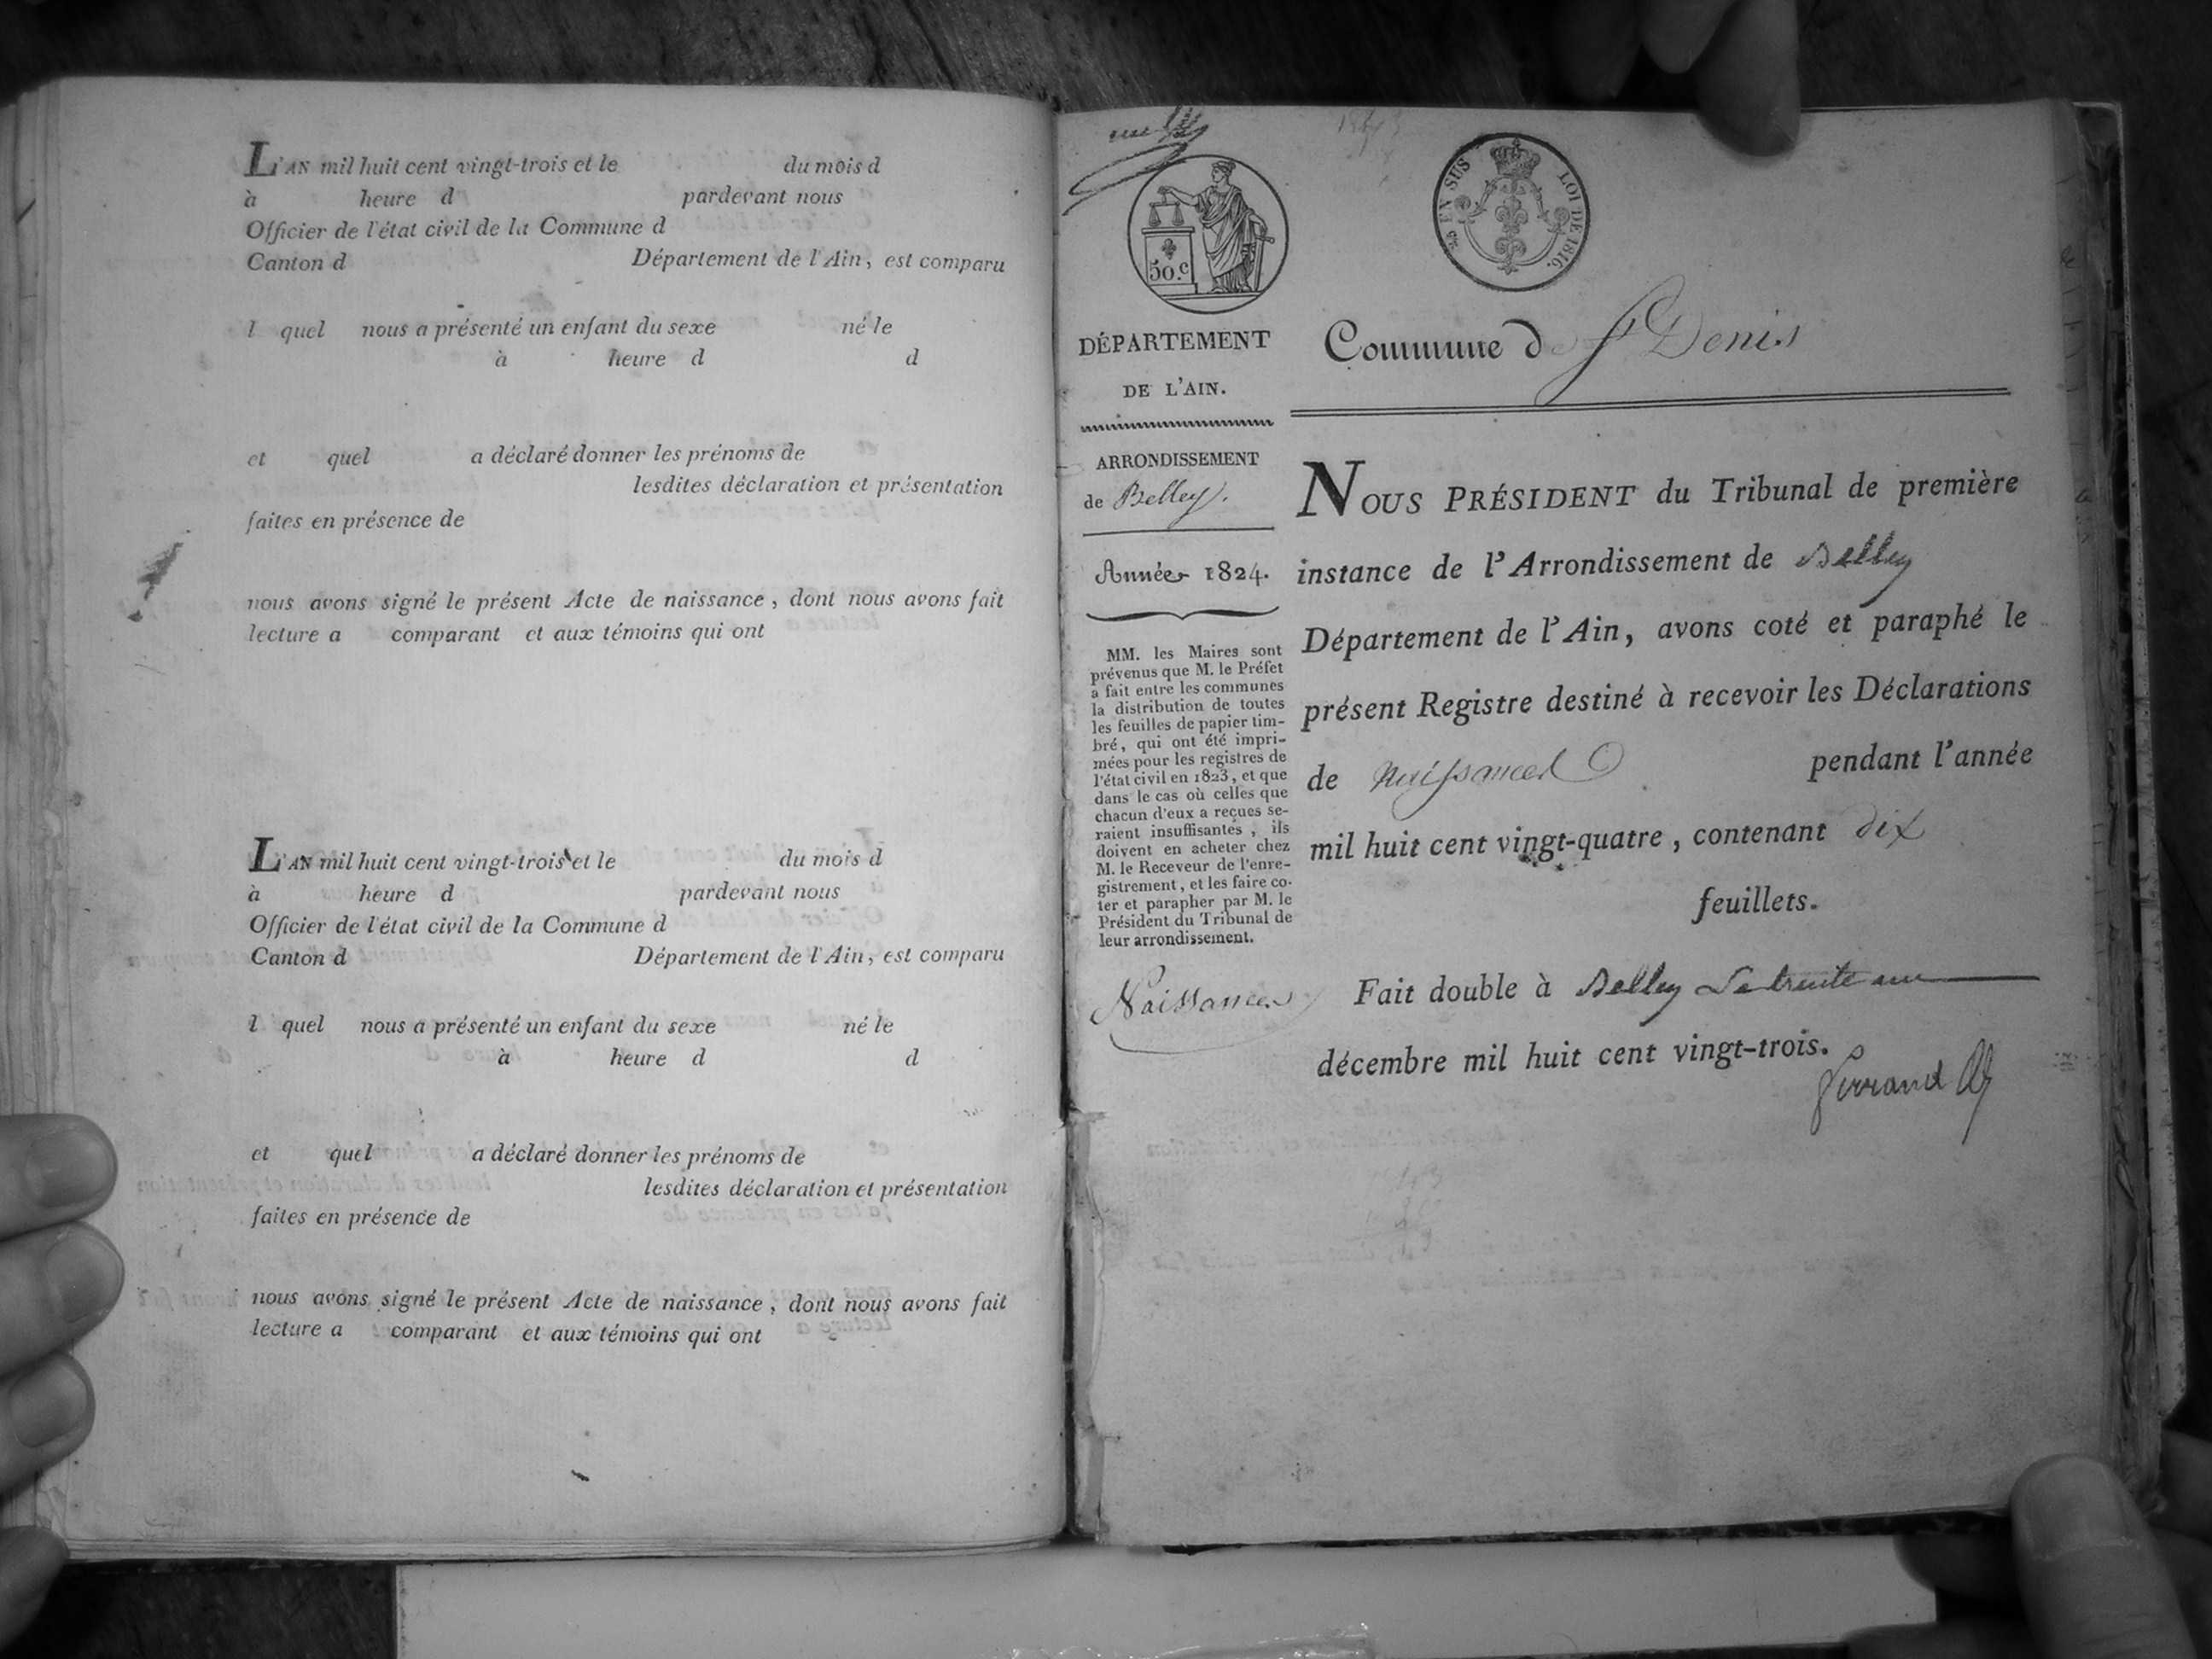 L'AN mil huit cent vingt-trois et le du mois d
à heure d pardevant nous
Officier de l'état civil de la Commune d
Canton d Département de l'Ain, est comparu
l quel nous a présenté un enfant du sexe né le
à heure d d
et quel a déclaré donner les prénoms de
lesdites déclaration et présentation
faites en présence de
nous avons signé le présent Acte de naissance, dont nous avons fait
lecture a comparant et aux témoins qui ont
L'AN mil huit cent vingt-trois et le du mois d
à heure d pardevant nous
Officier de l'état civil de la Commune d
Canton d Département de l'Ain, est comparu
l quel nous a présenté un enfant du sexe né le
à heure d d
et quel a déclaré donner les prénoms de
lesdites déclaration et présentation
faites en présence de
nous avons signé le présent Acte de naissance, dont nous avons fait
lecture a comparant et aux témoins qui ont
50.c
EN SUS LOI DE 1816.
DÉPARTEMENT
DE L'AIN.
ARRONDISSEMENT
de Belley.
Année 1824.
MM. les Maires sont
prévenus que M. le Préfet
a fait entre les communes
la distribution de toutes
les feuilles de papier tim-
bré, qui ont été impri-
mées pour les registres de
l'état civil en 1823, et que
dans le cas où celles que
chacun d'eux a reçues se-
raient insuffisantes, ils
doivent en acheter chez
M. le Receveur de l'enre-
gistrement, et les faire co-
ter et parapher par M. le
Président du Tribunal de
leur arrondissement.
Naissances
Commune de St Denis
NOUS PRÉSIDENT du Tribunal de première
instance de l'Arrondissement de Belley
Département de l'Ain, avons coté et paraphé le
présent Registre destiné à recevoir les Déclarations
de naissances pendant l'année
mil huit cent vingt-quatre, contenant dix
feuillets.
Fait double à Belley Le trente un
décembre mil huit cent vingt-trois.